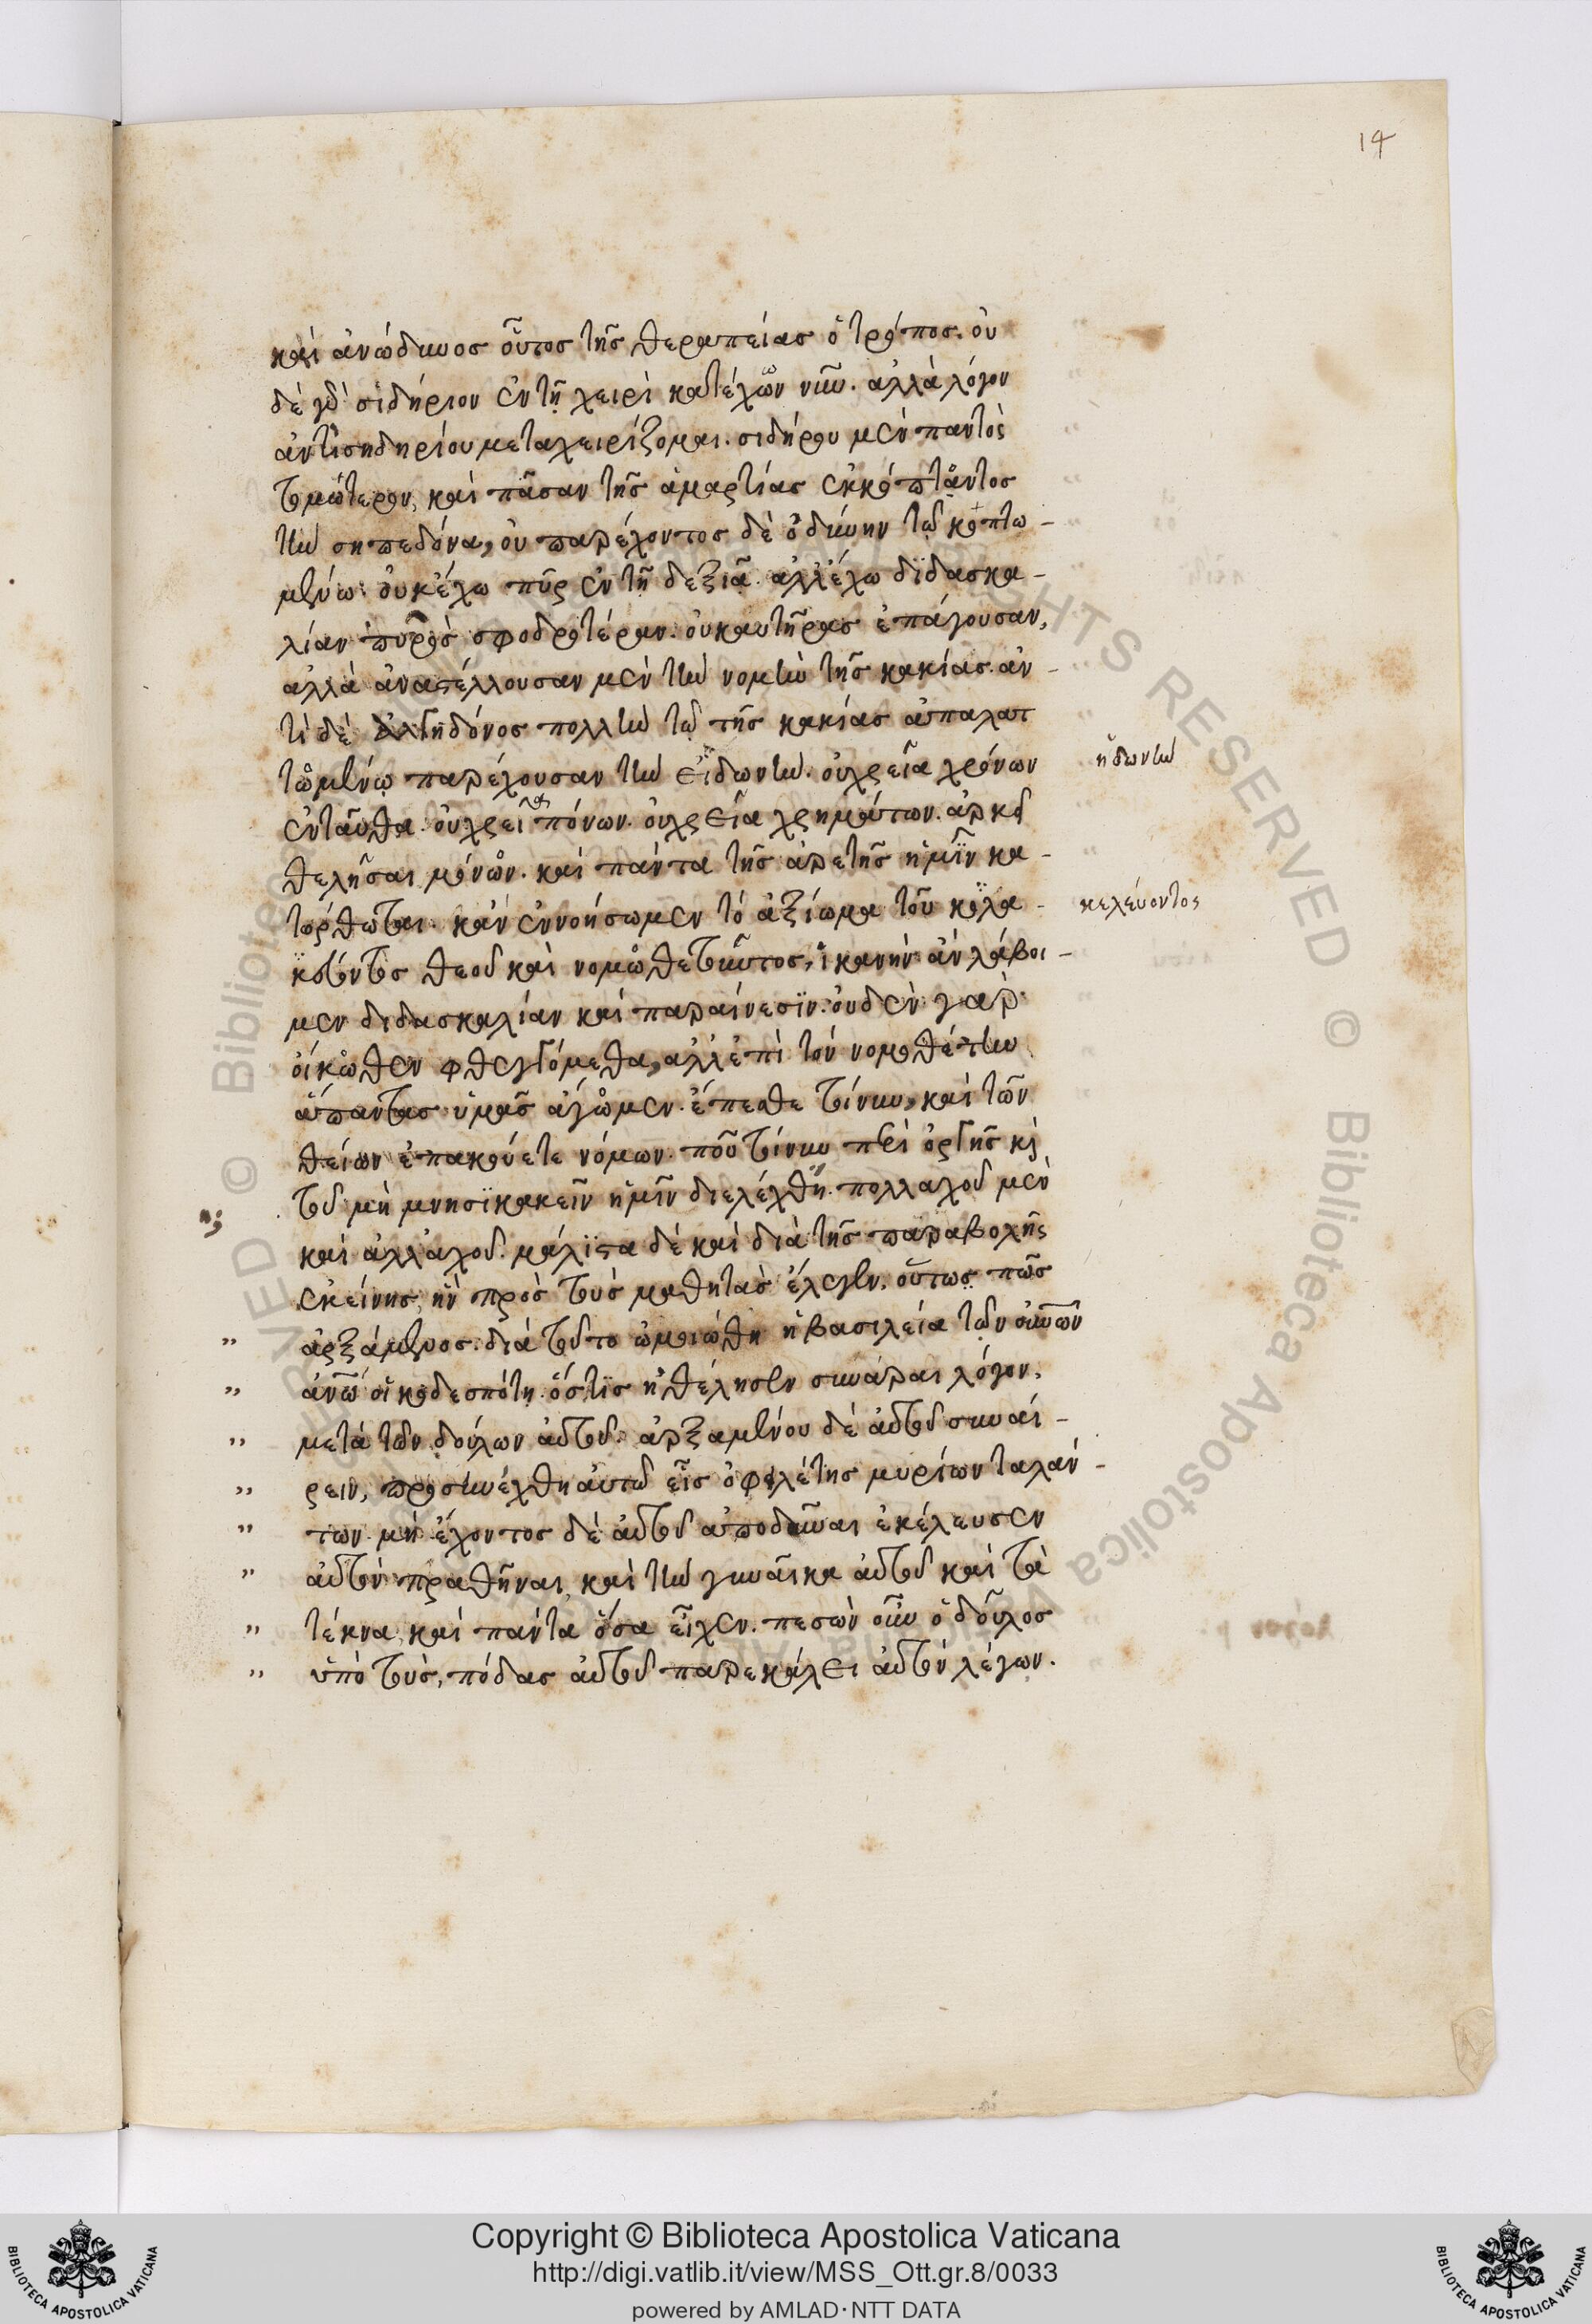 14
καὶ ἀνώδυνος οὗτος τῆς θεραπείας ὁ τρόπος. οὐ
δὲ γὰρ σιδήριον ἐν τῇ χειρὶ κατέχων νῦν. ἀλλὰ λόγον
ἀντισηδηρίου μεταχειρίζομαι. σιδήρου μὲν παντὸς
τομώτερον, καὶ πᾶσαν τῆς ἁμαρτίας ἐκκόπτοντος
τὴν σηπεδόνα, οὐ παρέχοντος δὲ ὀδύνην τῷ κοπτο-
μένω. οὐκ ἔχω πῦρ ἐν τῇ δεξιᾷ. ἀλλ' ἔχω διδασκα-
λίαν πυρὸς σφοδροτέραν. οὐ καυτῆρας ἐπάγουσαν,
ἀλλὰ ἀναστέλλουσαν μὲν τὴν νομὴν τῆς κακίας. ἀν-
τὶ δὲ ἀλγηδόνος πολλὴν τῷ τῆς κακίας ἀπαλατ
τομένῳ παρέχουσαν τὴν εἰδωνήν. οὐ χρεία χρόνων
ἡδωνὴν
ἐνταῦθα. οὐ χρεία πόνων. οὐ χρεία χρημάτων. ἀρκεῖ
θελῆσαι μόνον. καὶ πάντα τῆς ἀρετῆς ἡμῖν κα-
τόρθωται. κἂν ἐννοήσωμεν τὸ ἀξίωμα τοῦ κελα-
κελεύοντος
θεοῦ καὶ νομοθετοῦντος, ἱκανὴν ἂν λάβοι-
μεν διδασκαλίαν καὶ παραίνεσιν. οὐδὲν γὰρ
οἴκωθεν φθεγγόμεθα, ἀλλ' ἐπὶ τὸν νομοθέτην
ἅπαντας ὑμᾶς ἄγομεν. ἕπεσθε τοίνυν, καὶ τῶν
θείων ἐπακούετε νόμων. ποῦ τοίνυν περὶ ὀργῆς καὶ
τοῦ μὴ μνησικακεῖν ἡμῖν διελέχθη. πολλαχοῦ μὲν
καὶ ἀλλαχοῦ. μάλιστα δὲ καὶ διὰ τῆς παραβολῆς
ἐκείνης, ἣν πρὸς τοὺς μαθητὰς ἔλεγεν, οὕτως πῶς
" ἀρξάμενος. διὰ τοῦτο ὡμοιώθη ἡ βασιλεία τῶν οὐνῶν
" ἀνῶ οἰκοδεσπότῃ. ὅστις ἠθέλησεν συνάραι λόγον,
" μετὰ τῶν δούλων αὐτοῦ. ἀρξαμένου δὲ αὐτοῦ συναί-
" ρειν, προσηνέχθη αὐτῷ εἷς ὀφειλέτης μυρίων ταλάν-
" των. μὴ ἔχοντος δὲ αὐτοῦ ἀποδοῦναι ἐκέλευσεν
" αὐτὸν πραθῆναι, καὶ τὴν γυναῖκα αὐτοῦ καὶ τὰ
" τέκνα, καὶ πάντα ὅσα εἶχεν. πεσὼν οὖν ὁ δοῦλος
" ὑπὸ τοὺς, πόδας αὐτοῦ παρεκάλει αὐτὸν λέγων.
Copyright © Biblioteca Apostolica Vaticana
http://digi.vatlib.it/view/MSS_Ott.gr.8/0033
powered by AMLAD·NTT DATA
BIBLIOTECA APOSTOLICA VATICANA
BIBLIOTECA APOSTOLICA VATICANA